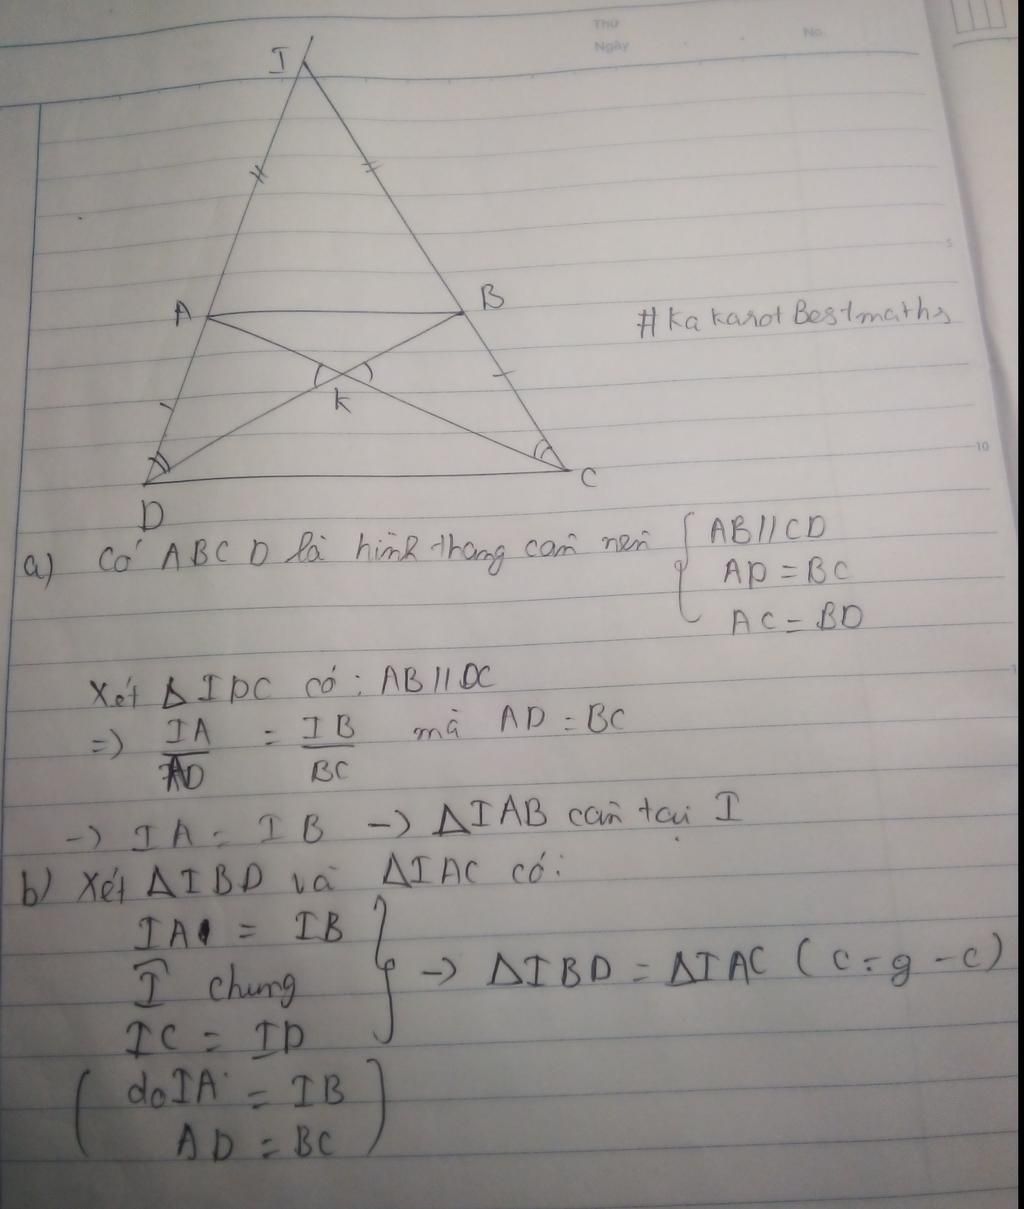 Thứ
Ngày
No.
I
A
B
#KakarotBestmaths
K
5
10
D
C
a) Có ABCD là hình thang cân nên { AB // CD
AD = BC
AC = BD
Xét Δ IDC có : AB // DC
=) IA/AD = IB/BC mà AD = BC
-> IA = IB -> ΔIAB cân tại I
b) Xét ΔIBD và ΔIAC có:
IA = IB
Î chung } -> ΔIBD = ΔIAC (c-g-c)
IC = ID
( do IA = IB
AD = BC )